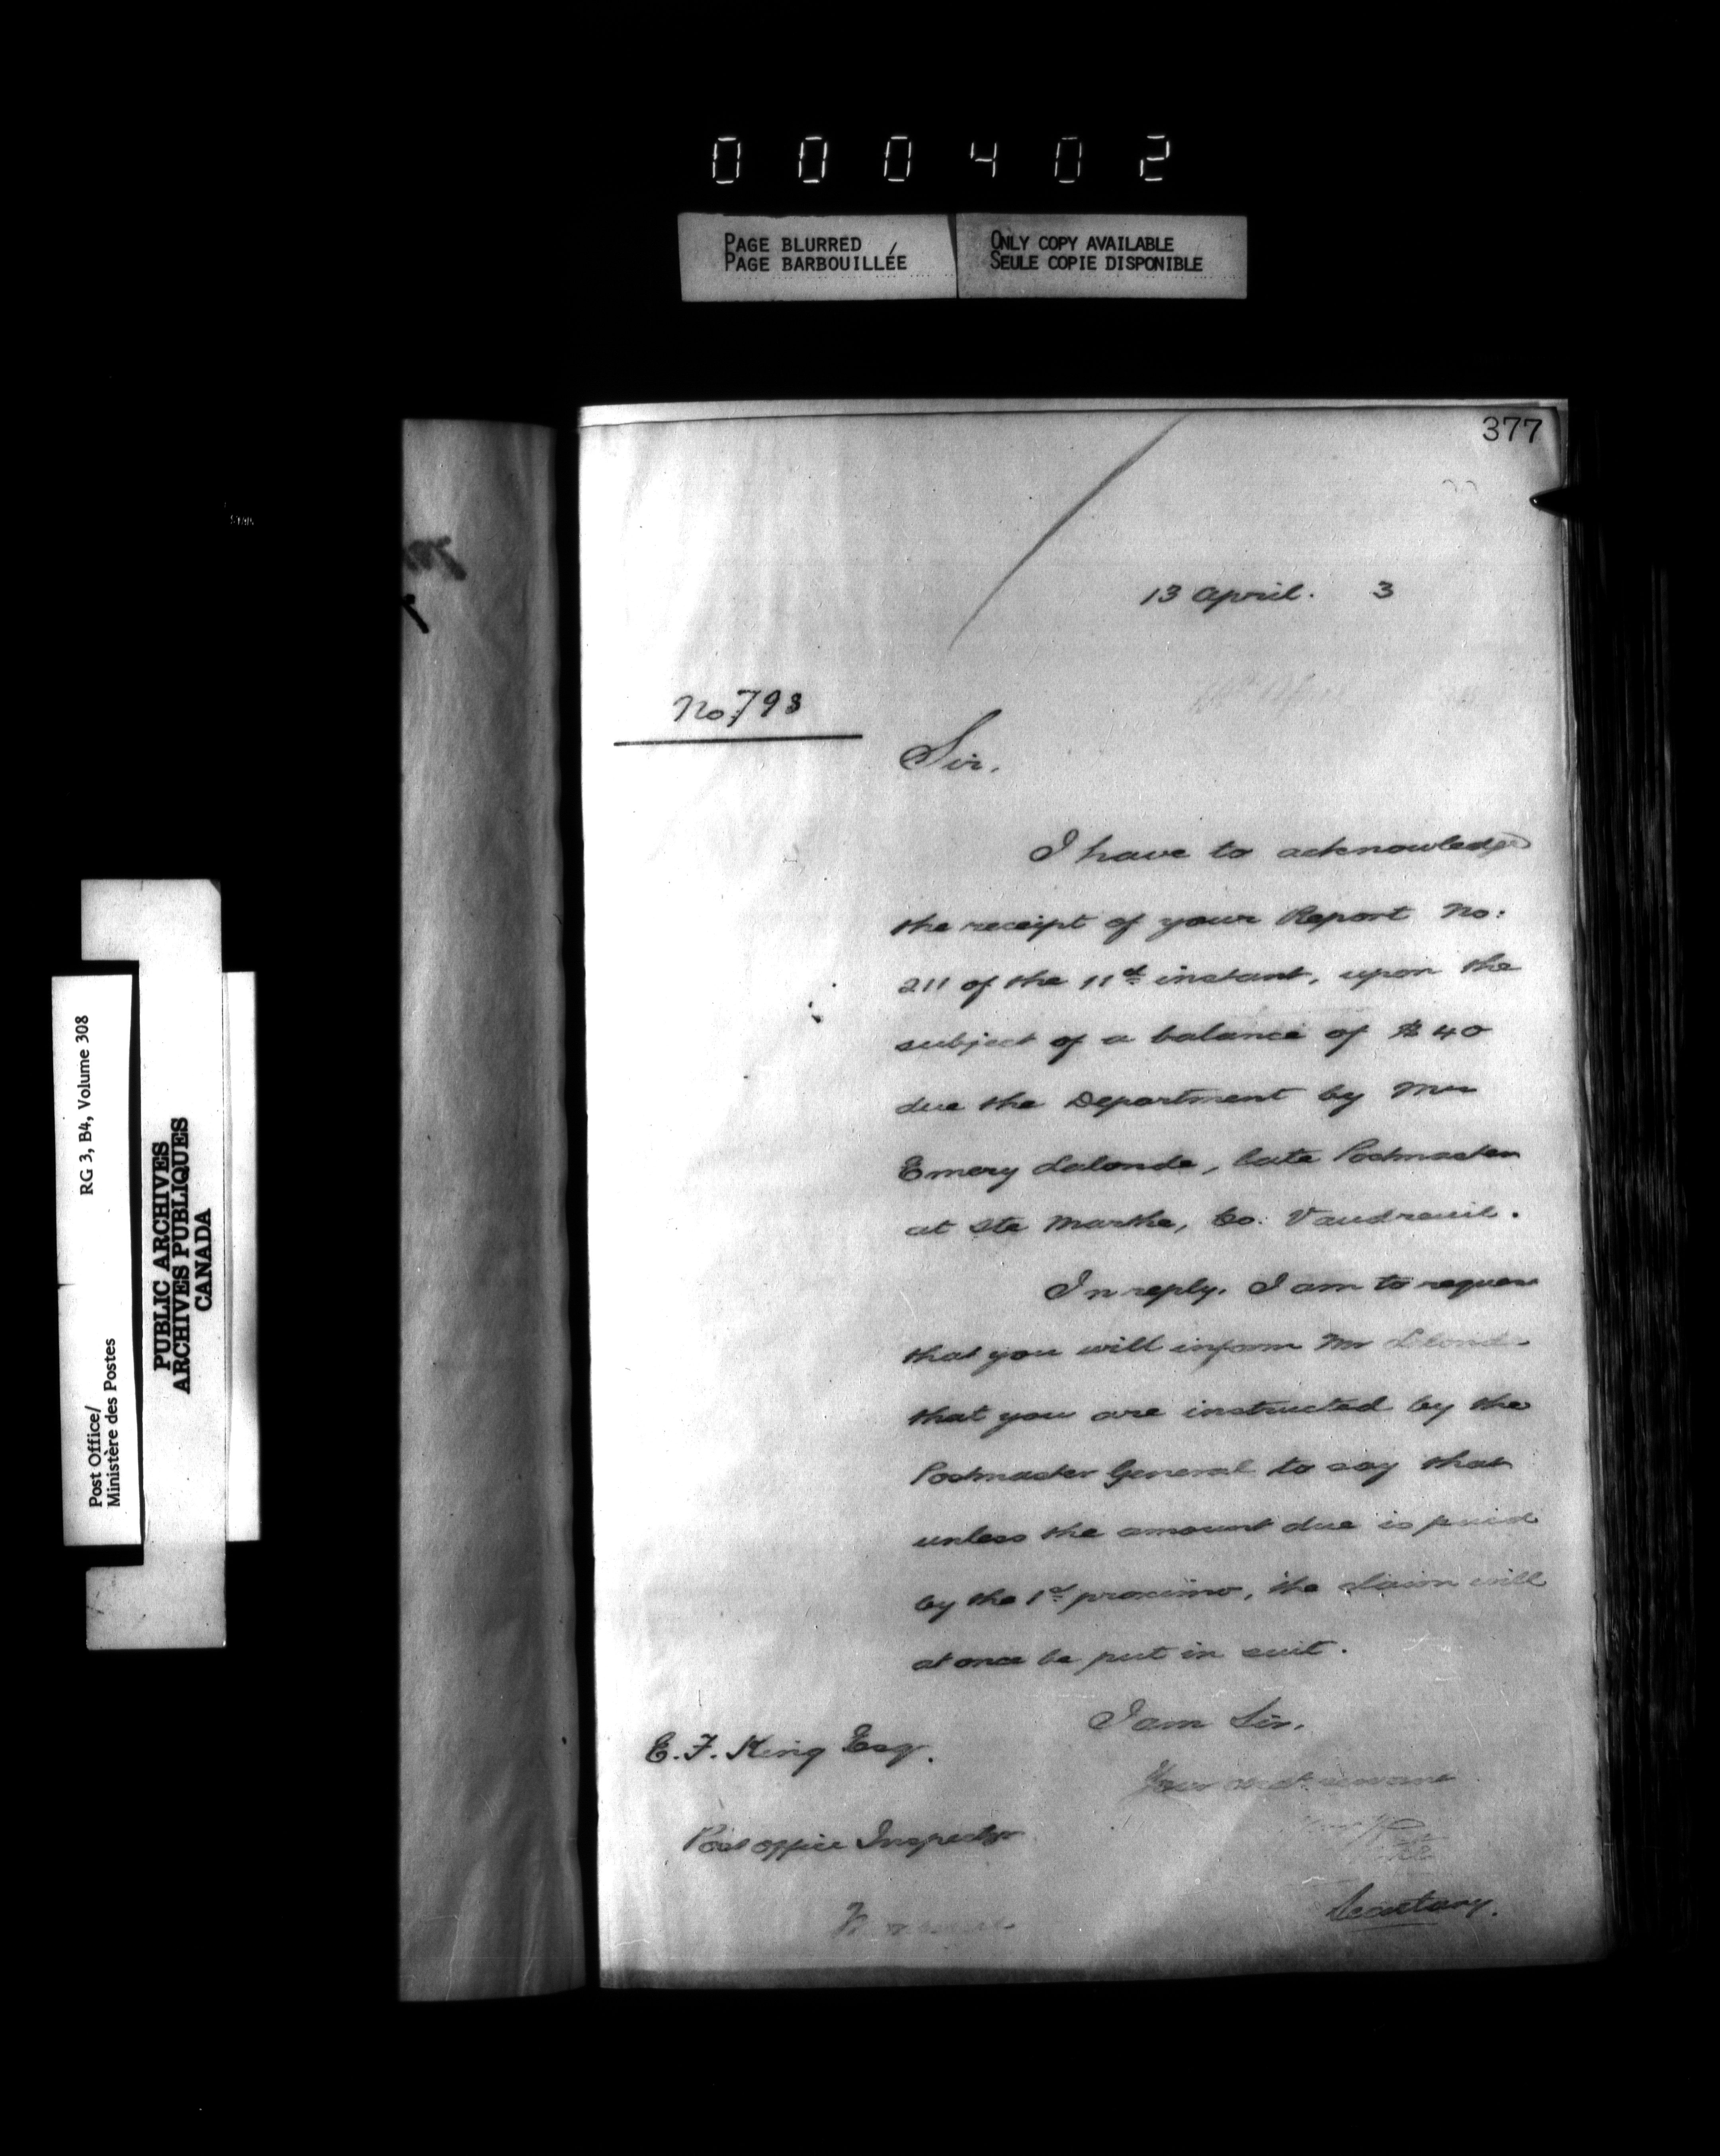 000402
PAGE BLURRED
PAGE BARBOUILLÉE
ONLY COPY AVAILABLE
SEULE COPIE DISPONIBLE
377
13 April. 3
No 793
Sir,
I have to acknowledge
the receipt of your Report No:
211 of the 11th instant, upon the
subject of a balance of $40
due the Department by Mr
Emery Lalonde, late Postmaster
at Ste Marthe, Co: Vaudreuil.
In reply, I am to request
that you will inform Mr Lalonde
that you are instructed by the
Postmaster General to say that
unless the amount due is paid
by the 1st proximo, the claim will
at once be put in suit.
I am Sir,
Your obedt servant
Secretary.
E. F. King Esq.
Post Office Inspector
Post Office/
Ministère des Postes
RG 3, B4, Volume 308
PUBLIC ARCHIVES
ARCHIVES PUBLIQUES
CANADA